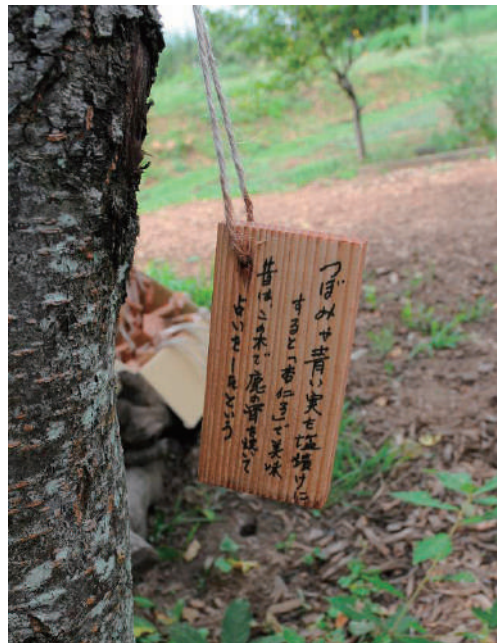 つぼみや青い実を塩漬けに
すると「杏仁子」で美味
昔は、この木で鹿の骨を焼いて
占いをしたという